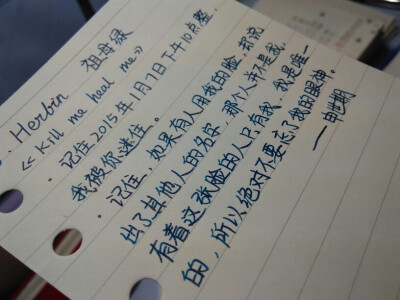 · Herbin 祖母绿
《Kill me heal me》
· 记住2015年1月7日下午10点整,
我被你迷住。
· 记住,如果有人用我的脸,却说
出了其他人的名字,那个人并不是我,
有着这张脸的人只有我,我是唯一
的,所以绝对不要忘了我的眼神。
——申世期